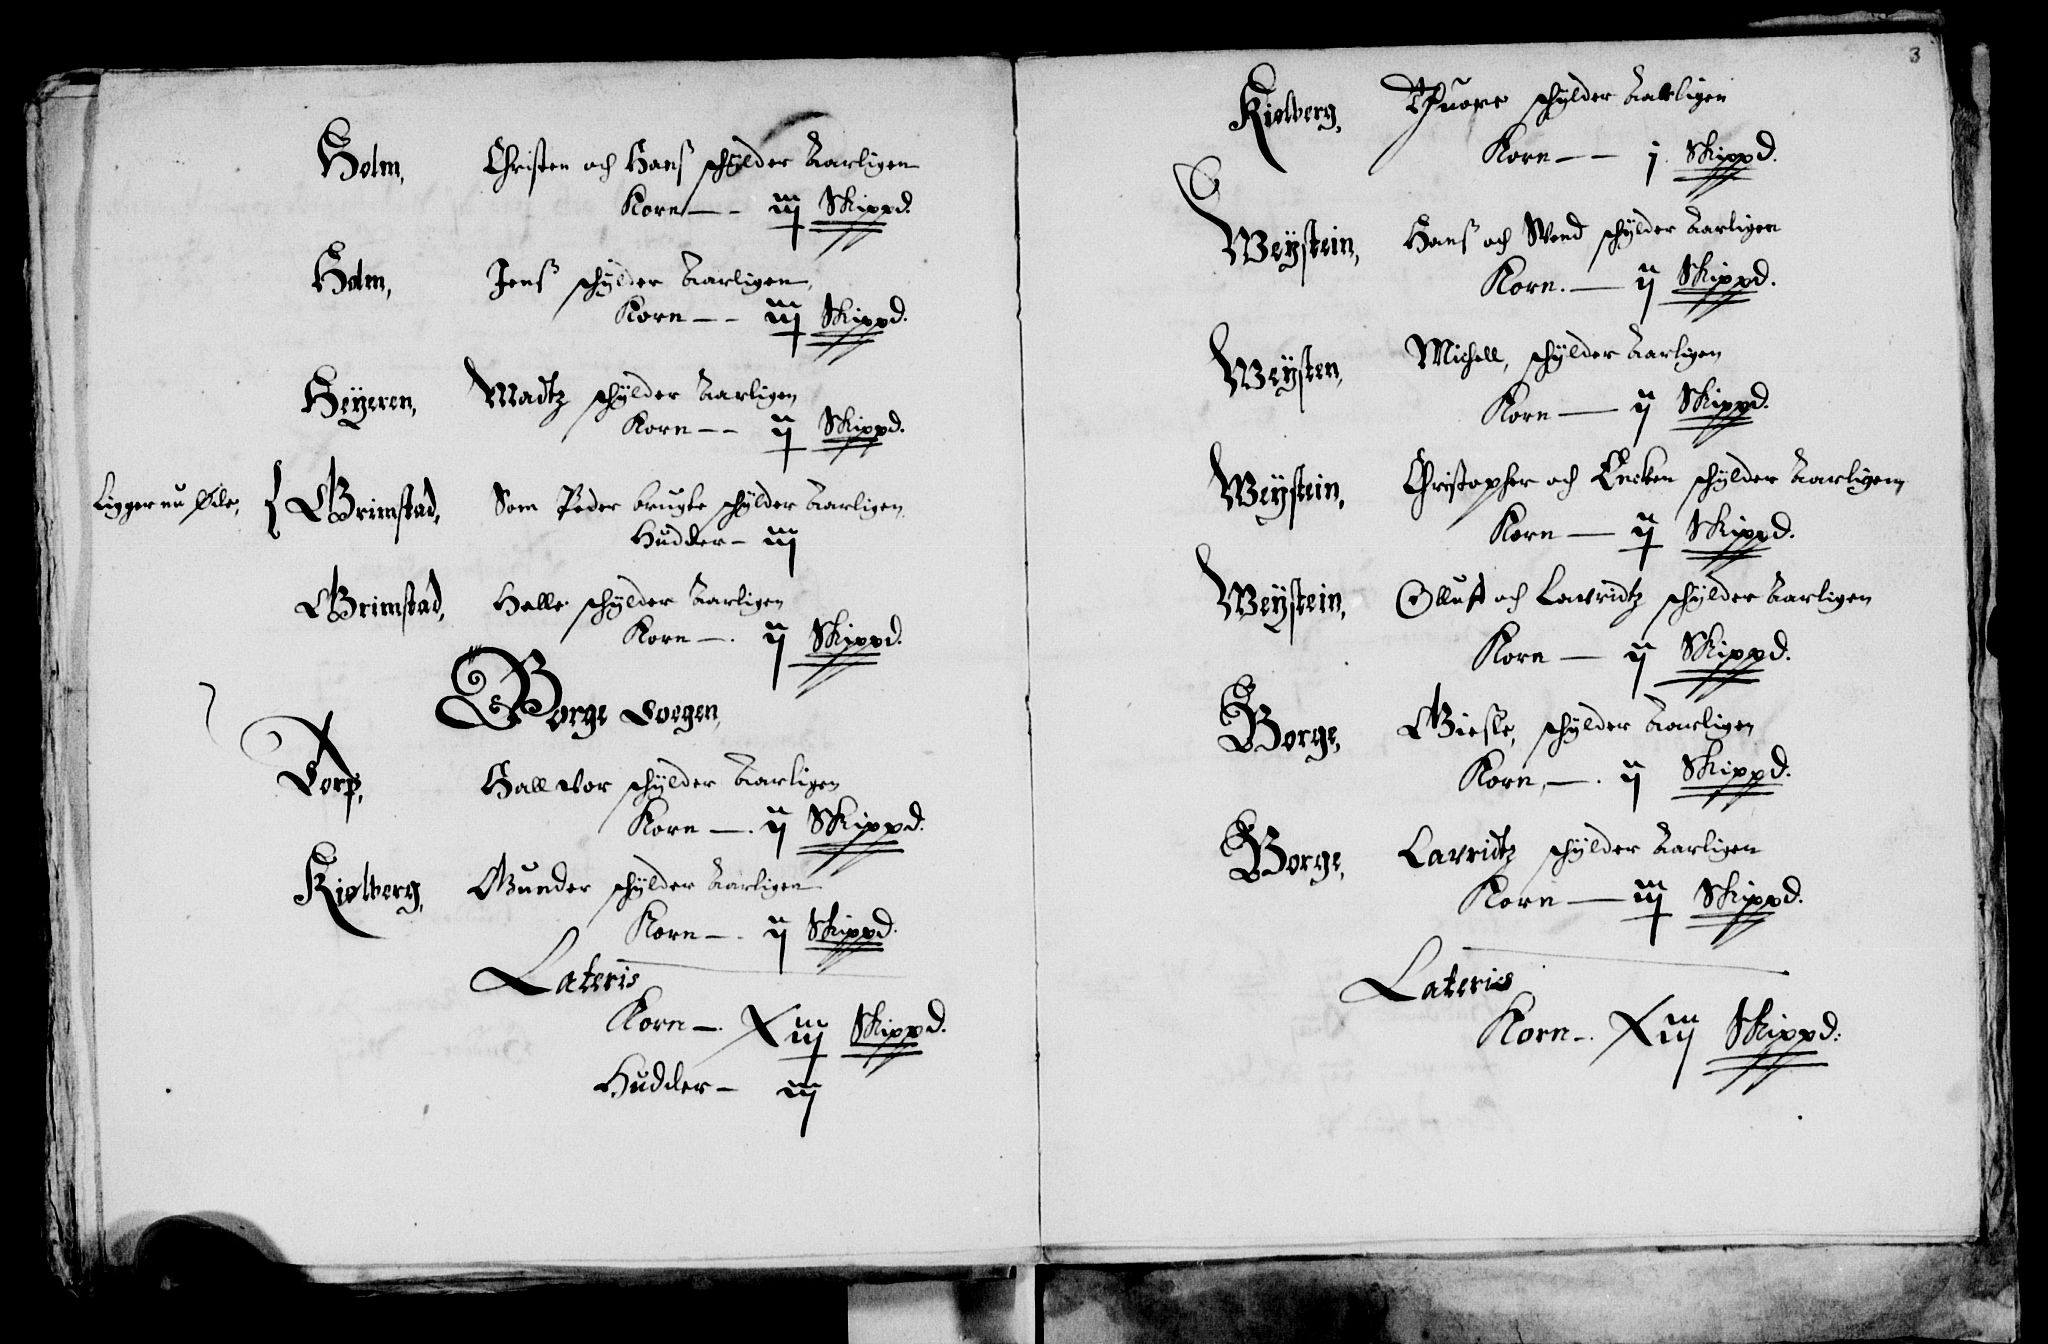 Holm, Christen och Hanß schÿlder Aarligen
Korn — - iiij Skippd.
Holm, Jenß schÿlder Aarligen,
Korn — - iiij Skippd.
Heÿeren, Madtz schÿlder Aarligen
Korn — - ij Skippd.
Ligger nu Øde, { Grimstad, Som Peder brugte schÿlder Aarligen
Hudder — iij
Grimstad, Helle schÿlder Aarligen
Korn —. ij Skippd.
Borge Soegen,
Torp, Hallvor schÿlder Aarligen
Korn —. ij Skippd.
Kiølberg, Gunder schÿlder Aarligen
Korn — . ij Skippd.
Lateris
Korn —. Xiiij Skippd.
Hudder — iij
3
Kiølberg, Thuore schÿlder Aarligen
Korn — — j. Skippd.
Weÿstein, Hanß och Swend schÿlder Aarligen
Korn. — ij Skippd.
Weÿsten, Michell, schÿlder Aarligen
Korn — ij Skippd.
Weÿstein, Christopher och schÿlder Aarligen
Korn — ij Skippd.
Weÿstein, Olluf och Lavridtz schÿlder Aarligen
Korn — ij Skippd.
Borge, schÿlder Aarligen
Korn, —. ij Skippd.
Borge, Lavridtz schÿlder Aarligen
Korn — iij Skippd.
Lateris
Korn —. Xiij Skippd: